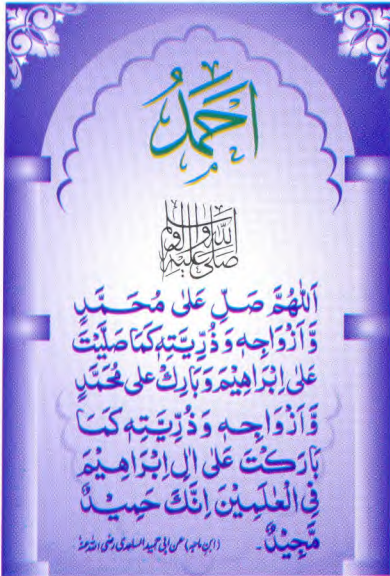 اَحْمَدُ
صَلَّى اللهُ عَلَيْهِ وَآلِهِ وَسَلَّم
اَللّٰهُمَّ صَلِّ عَلٰى مُحَمَّدٍ
وَّاَزْوَاجِهٖ وَذُرِّيَّتِهٖ كَمَا صَلَّيْتَ
عَلٰى اِبْرَاهِيْمَ وَبَارِكْ عَلٰى مُحَمَّدٍ
وَّاَزْوَاجِهٖ وَذُرِّيَّتِهٖ كَمَا
بَارَكْتَ عَلٰى اٰلِ اِبْرَاهِيْمَ
فِى الْعٰلَمِيْنَ اِنَّكَ حَمِيْدٌ
مَّجِيْدٌ۔ (ابن ماجہ) عن ابی حمید الساعدی رضی اللہ عنہ